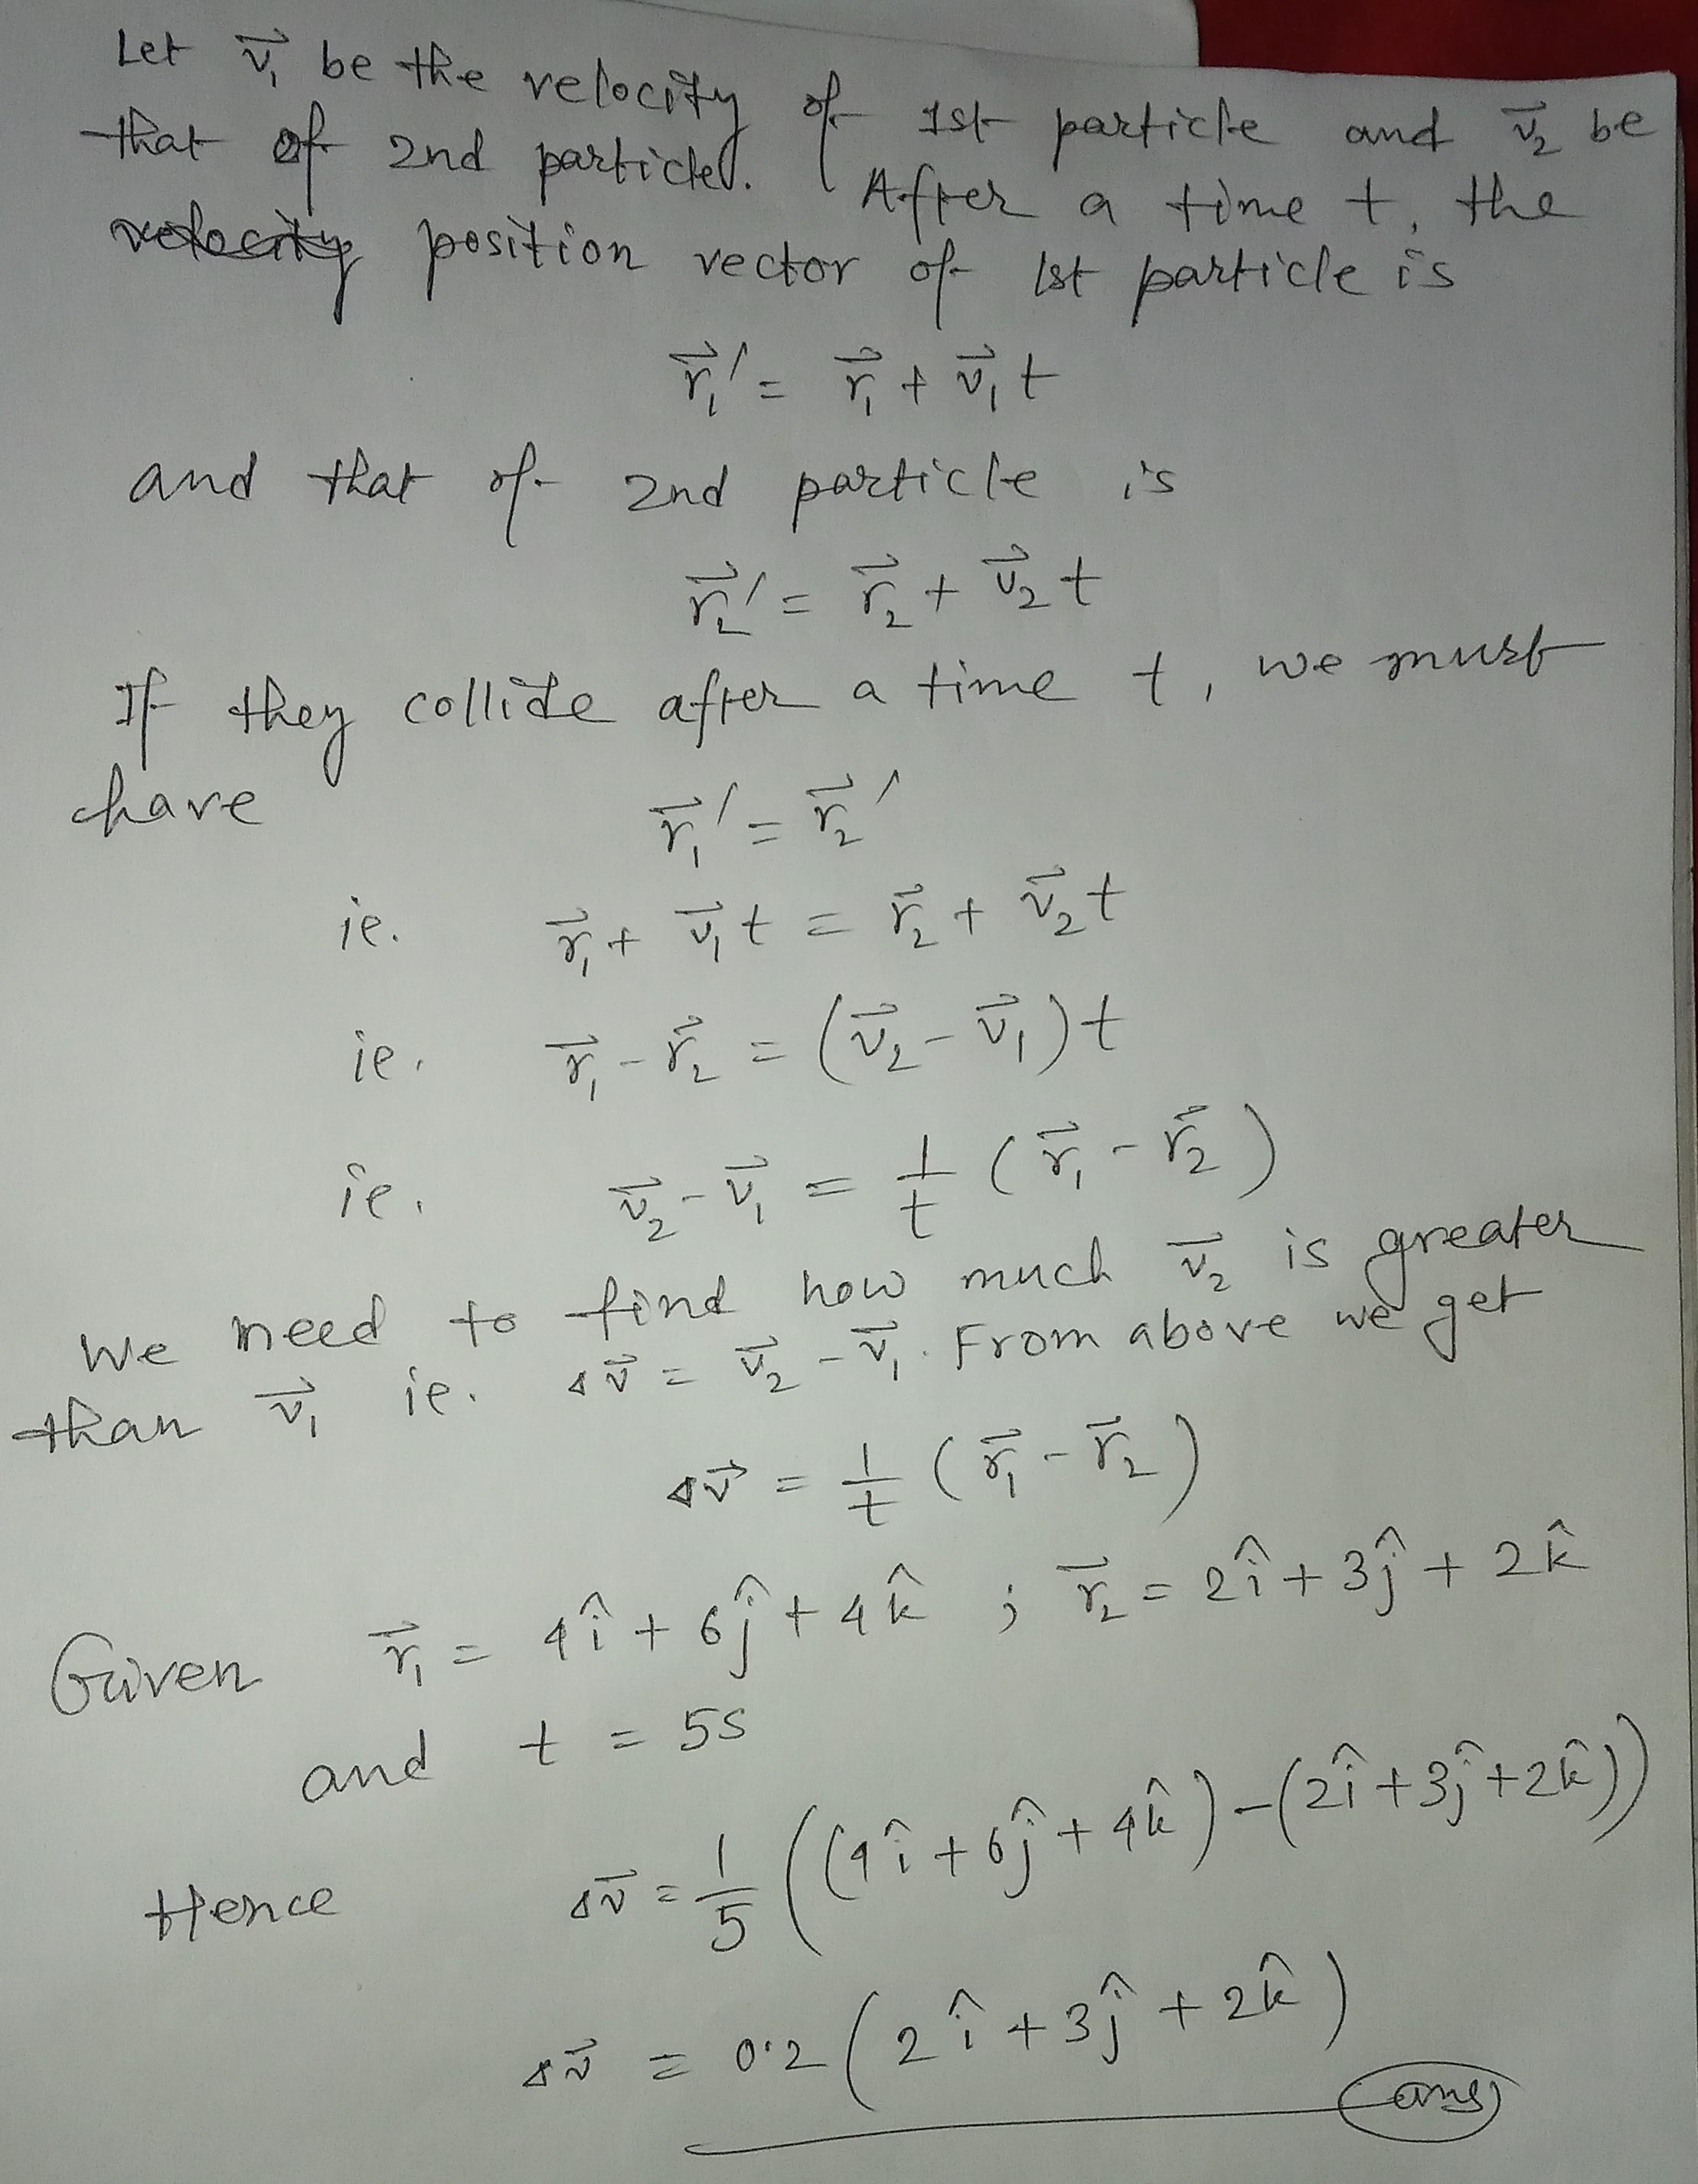 Let v⃗₁ be the velocity of 1st particle and v⃗₂ be
that of 2nd particle. After a time t, the
velocity position vector of 1st particle is
r⃗₁′ = r⃗₁ + v⃗₁t
and that of 2nd particle is
r⃗₂′ = r⃗₂ + v⃗₂t
If they collide after a time t, we must
have
r⃗₁′ = r⃗₂′
ie. r⃗₁ + v⃗₁t = r⃗₂ + v⃗₂t
ie. r⃗₁ - r⃗₂ = (v⃗₂ - v⃗₁)t
ie. v⃗₂ - v⃗₁ = 1/t (r⃗₁ - r⃗₂)
We need to find how much v⃗₂ is greater
than v⃗₁ ie. Δv⃗ = v⃗₂ - v⃗₁. From above we get
Δv⃗ = 1/t (r⃗₁ - r⃗₂)
Given r⃗₁ = 4î + 6ĵ + 4k̂ ; r⃗₂ = 2î + 3ĵ + 2k̂
and t = 5s
Hence Δv⃗ = 1/5 ((4î + 6ĵ + 4k̂) - (2î + 3ĵ + 2k̂))
Δv⃗ = 0.2 (2î + 3ĵ + 2k̂)
ans